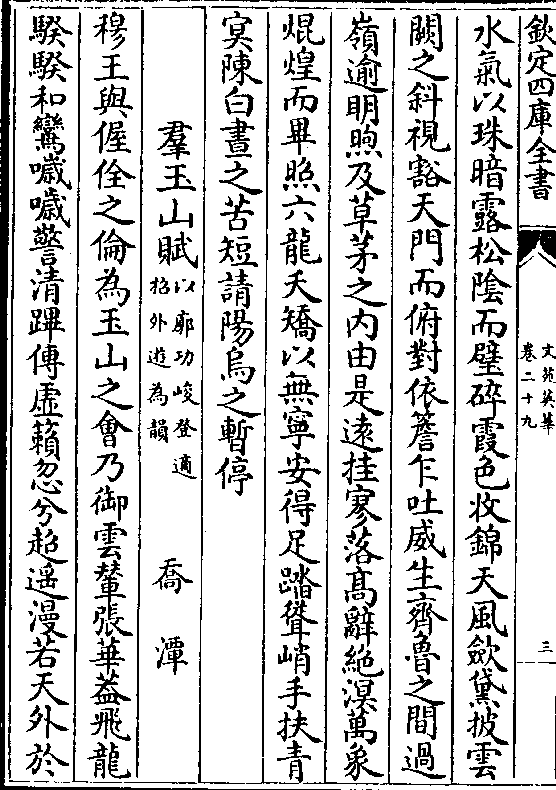 欽定四庫全書
文苑英華
卷二十九
三
水氣以珠暗露松陰而壁碎霞色收錦天風歛黛披雲
闕之斜視豁天門而俯對依簷乍吐威生齊魯之間過
嶺逾明煦及草茅之内由是逺挂寥落髙辭絶溟萬象
焜煌而畢照六龍夭矯以無寧安得足踏聳峭手扶青
冥陳白晝之苦短請陽烏之暫停
羣玉山賦以廓功峻登適
招外遊為韻
喬潭
穆王與偓佺之倫為玉山之會乃御雲輦張華葢飛龍
騤騤和鸞噦噦警清蹕傳虛籟忽兮超遥漫若天外於